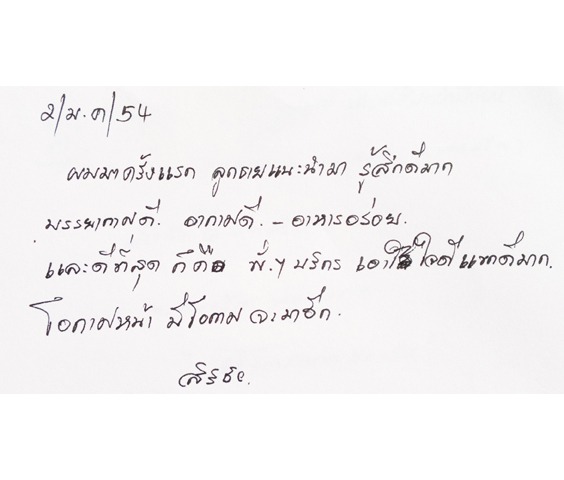 2/ม.ค/54
ผมมาครั้งแรก ลูกชายแนะนำมา รู้สึกดีมาก
บรรยากาศดี. อากาศดี. - อาหารอร่อย.
และดีที่สุด ก็คือ พี่ๆ บริการ เอาใจใส่ดีมาก.
โอกาสหน้า มีโอกาส จะมาอีก.